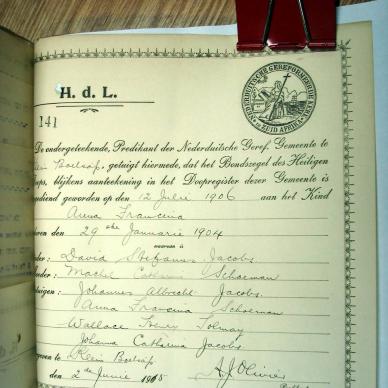 H. d. L.
141
De ondergeteekende, Predikant der Nederduitsche Geref. Gemeente te
Klein Boetsap, getuigt hiermede, dat het Bondszegel des Heiligen
blijkens aanteekening in het Doopregister dezer Gemeente is
geworden op 12 Julie 1906 aan het Kind
Anna Francina
den 29ste Januarie 1904
waarvan is
David Stefanus Jacobs
Catherina Schoeman
Johannes Albrecht Jacobs
Anna Francina Schoeman
Wallace Henry
Johanna Catharina Jacobs
te Klein Boetsap
2de Junie 19
A.J. Olivier